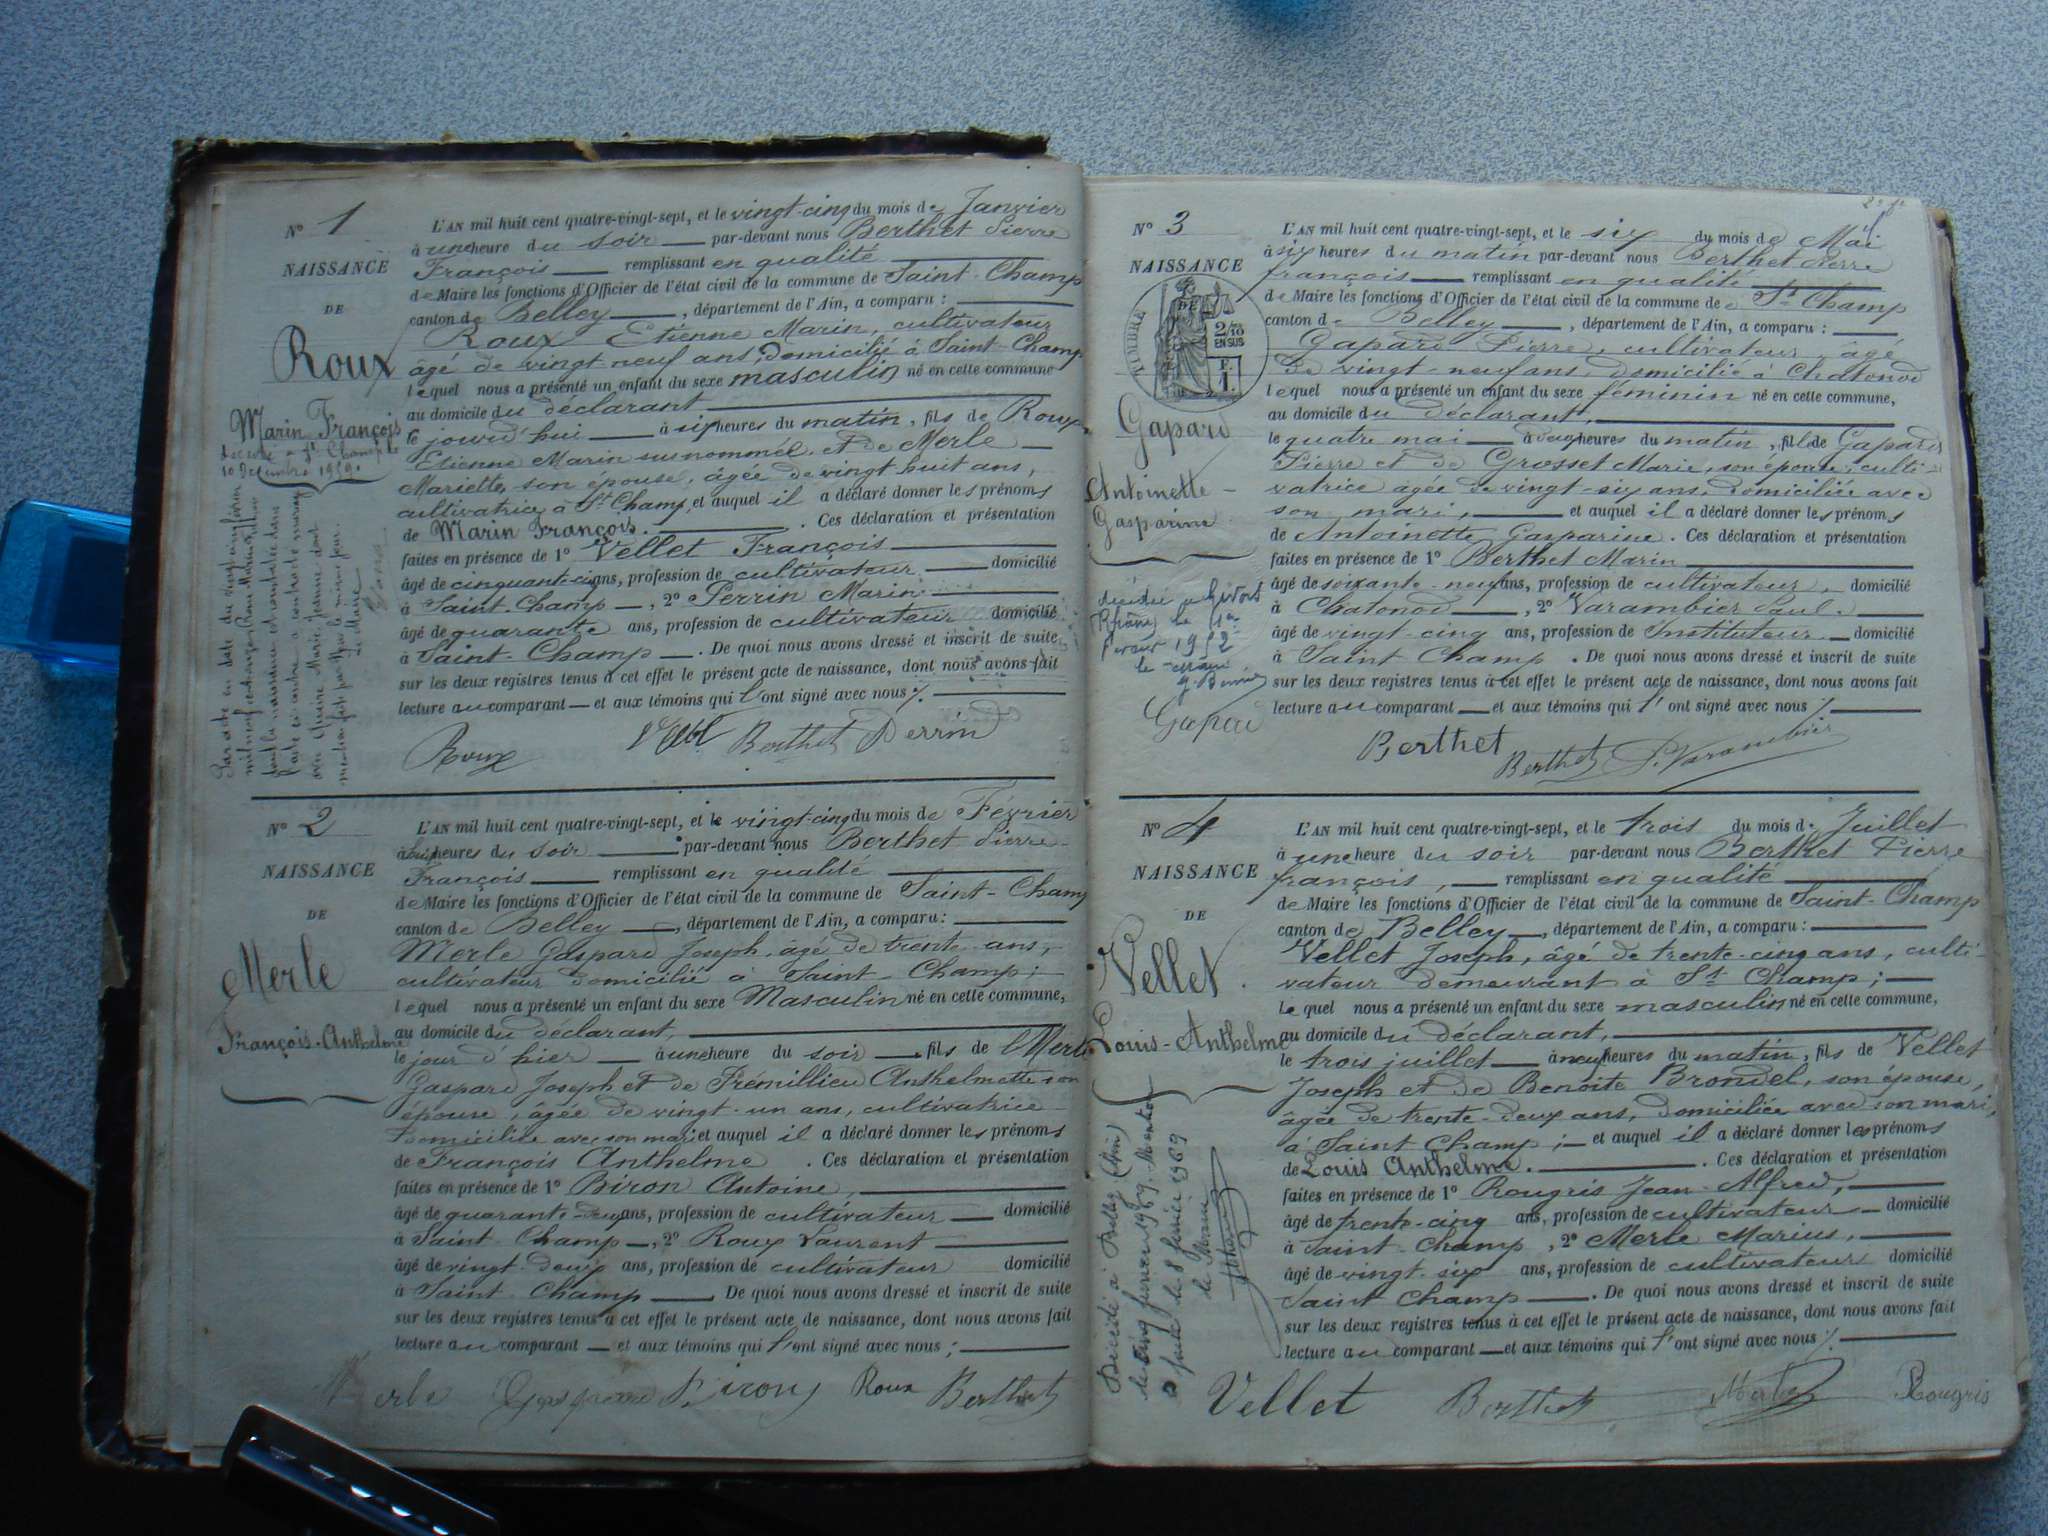 N° 1
NAISSANCE
DE
Roux
Marin François
décédé à St Champ le
10 Décembre 1959
L'AN mil huit cent quatre-vingt-sept, et le vingt-cinq du mois de Janvier
à une heure du soir par-devant nous Berthet Pierre
François remplissant en qualité
de Maire les fonctions d'Officier de l'état civil de la commune de Saint-Champ
canton de Belley, département de l'Ain, a comparu :
Roux Etienne Marin, cultivateur
âgé de vingt neuf ans, domicilié à Saint-Champ
lequel nous a présenté un enfant du sexe masculin né en cette commune
au domicile du déclarant
le jourd'hui à six heures du matin, fils de Roux
Etienne Marin susnommé et de Merle
Mariette, son épouse, âgée de vingt huit ans,
cultivatrice à St Champ, et auquel il a déclaré donner les prénoms
de Marin François. Ces déclaration et présentation
faites en présence de 1° Vellet François
âgé de cinquante-cinq ans, profession de cultivateur domicilié
à Saint-Champ, 2° Perrin Marin
âgé de quarante ans, profession de cultivateur domicilié
à Saint-Champ. De quoi nous avons dressé et inscrit de suite
sur les deux registres tenus à cet effet le présent acte de naissance, dont nous avons fait
lecture au comparant et aux témoins qui l'ont signé avec nous
Roux Vellet Berthet Perrin
N° 2
NAISSANCE
DE
Merle
François-Anthelme
L'AN mil huit cent quatre-vingt-sept, et le vingt-cinq du mois de Février
à huit heures du soir par-devant nous Berthet Pierre
François remplissant en qualité
de Maire les fonctions d'Officier de l'état civil de la commune de Saint-Champ
canton de Belley, département de l'Ain, a comparu :
Merle Gaspard Joseph, âgé de trente ans,
cultivateur domicilié à Saint-Champ ;
lequel nous a présenté un enfant du sexe Masculin né en cette commune,
au domicile du déclarant,
le jour d'hier à une heure du soir fils de Merle
Gaspard Joseph et de Frémillieu Anthelmette son
épouse, âgée de vingt-un ans, cultivatrice
domiciliée avec son mari et auquel il a déclaré donner les prénoms
de François Anthelme. Ces déclaration et présentation
faites en présence de 1° Biron Antoine,
âgé de quarante-deux ans, profession de cultivateur domicilié
à Saint-Champ, 2° Roux Laurent
âgé de vingt-deux ans, profession de cultivateur domicilié
à Saint-Champ De quoi nous avons dressé et inscrit de suite
sur les deux registres tenus à cet effet le présent acte de naissance, dont nous avons fait
lecture au comparant et aux témoins qui l'ont signé avec nous ;
Merle Gaspard Biron Roux Berthet
N° 3
NAISSANCE
DE
TIMBRE
2/10
EN SUS
F.
1.
Gapard
Antoinette-
Gasparine
décédée à Givors
(Rhône) le 1er
1952
le maire
L'AN mil huit cent quatre-vingt-sept, et le six du mois de Mai
à six heures du matin par-devant nous Berthet Pierre
françois remplissant en qualité
de Maire les fonctions d'Officier de l'état civil de la commune de St Champ
canton de Belley, département de l'Ain, a comparu :
Gapard Pierre, cultivateur, âgé
de vingt-neuf ans, domicilié à Chatonod
lequel nous a présenté un enfant du sexe féminin né en cette commune,
au domicile du déclarant,
le quatre mai à deux heures du matin, fille de Gapard
Pierre et de Grosset Marie, son épouse, culti-
vatrice âgée de vingt-six ans, domiciliée avec
son mari, et auquel il a déclaré donner les prénoms
de Antoinette Gasparine. Ces déclaration et présentation
faites en présence de 1° Berthet Marin
âgé de soixante-neuf ans, profession de cultivateur, domicilié
à Chatonod, 2° Varambier Paul.
âgé de vingt-cinq ans, profession de Instituteur domicilié
à Saint Champ. De quoi nous avons dressé et inscrit de suite
sur les deux registres tenus à cet effet le présent acte de naissance, dont nous avons fait
lecture au comparant et aux témoins qui l'ont signé avec nous
Gapard Berthet Berthet P. Varambier
N° 4
NAISSANCE
DE
Vellet
Louis-Anthelme
Décédé à Belley (Ain)
le cinq janvier 1969. Mention
faite le 8 janvier 1969
le Maire
L'AN mil huit cent quatre-vingt-sept, et le trois du mois de Juillet
à une heure du soir par-devant nous Berthet Pierre
françois, remplissant en qualité
de Maire les fonctions d'Officier de l'état civil de la commune de Saint-Champ
canton de Belley, département de l'Ain, a comparu :
Vellet Joseph, âgé de trente-cinq ans, culti-
vateur demeurant à St Champ ;
Lequel nous a présenté un enfant du sexe masculin né en cette commune,
au domicile du déclarant,
le trois juillet à neuf heures du matin, fils de Vellet
Joseph et de Benoite Brondel, son épouse,
âgée de trente-deux ans, domiciliée avec son mari,
à Saint Champ ; et auquel il a déclaré donner les prénoms
de Louis Anthelme. Ces déclaration et présentation
faites en présence de 1° Rougris Jean-Alfred,
âgé de trente-cinq ans, profession de cultivateur domicilié
à Saint-Champ, 2° Merle Marius,
âgé de vingt-six ans, profession de cultivateur domicilié
Saint Champ. De quoi nous avons dressé et inscrit de suite
sur les deux registres tenus à cet effet le présent acte de naissance, dont nous avons fait
lecture au comparant et aux témoins qui l'ont signé avec nous
Vellet Berthet Merle Rougris